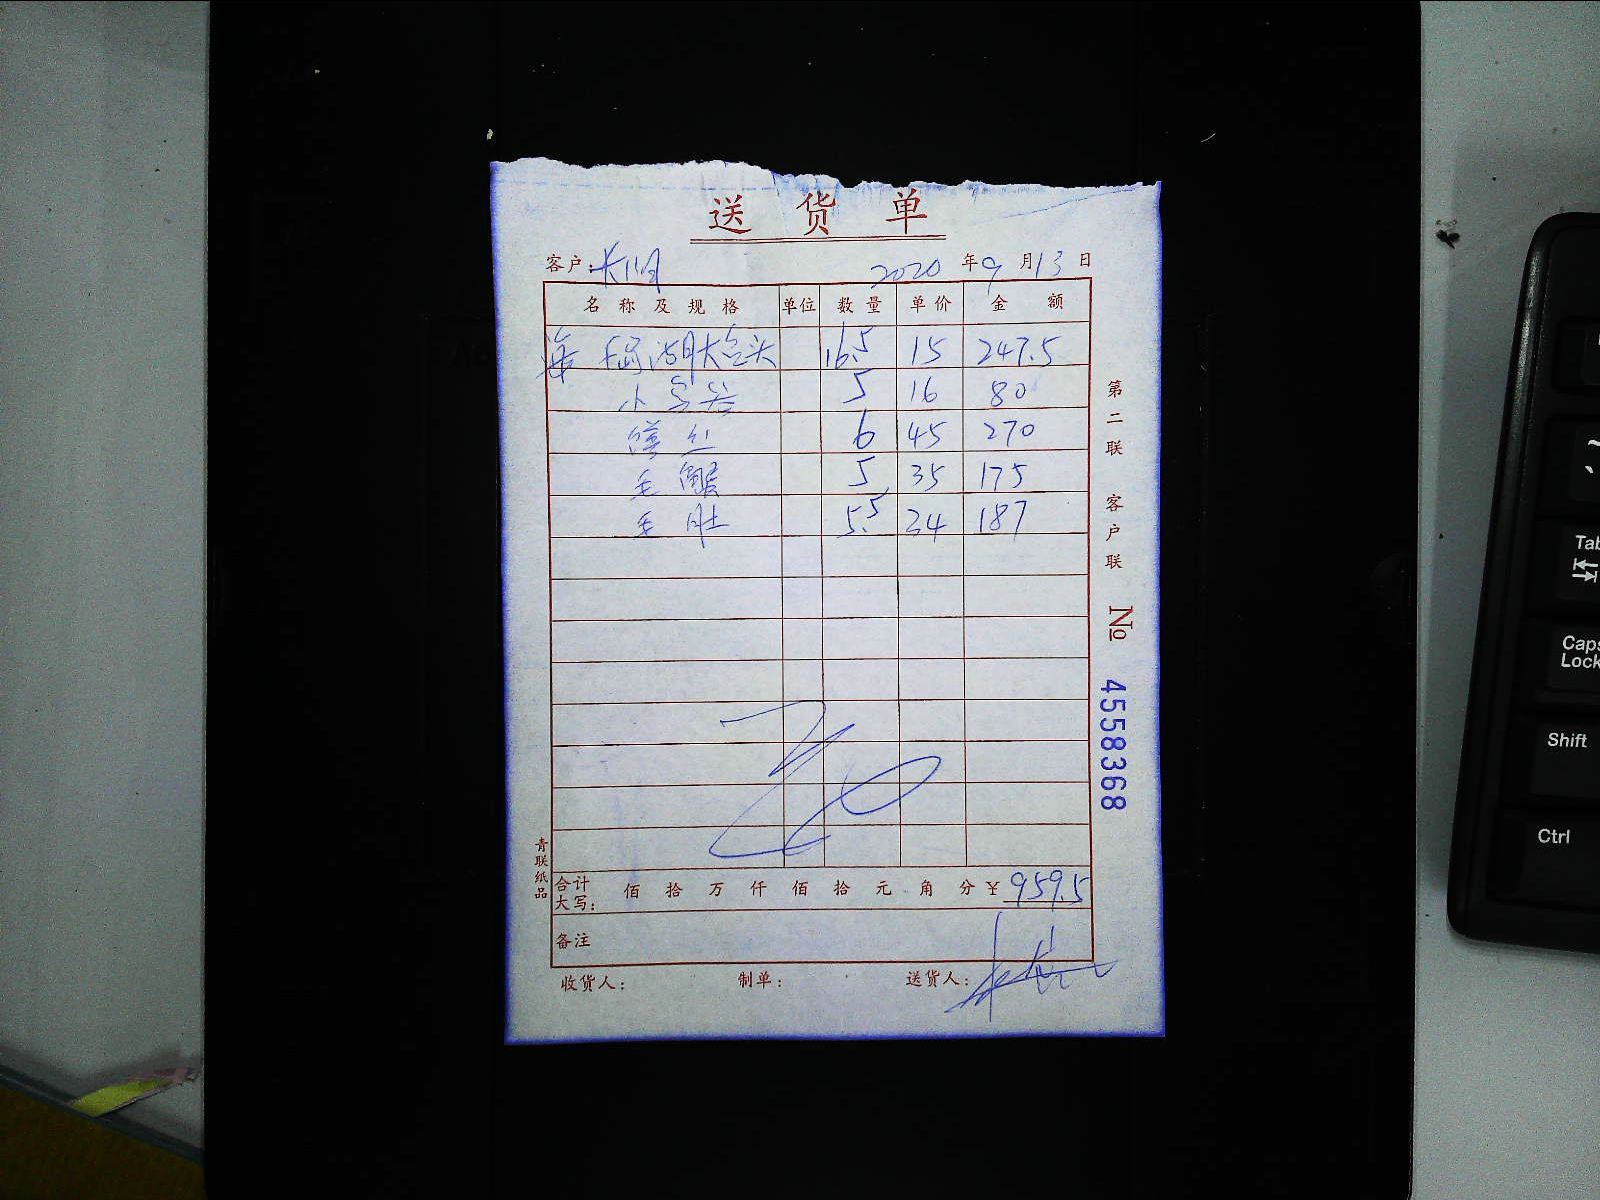 送货单
客户: 2020年9月13日
名称及规格 单位 数量 单价 金额
海 千岛湖大鱼头 16.5 15 247.5
小鱼头 5 16 80
5 35 175
毛肚 5.5 34 187
6 45 270
第二联 客户联 № 4558368
青联纸品
合计大写: 佰 拾 万 仟 佰 拾 元 角 分 ¥ 959.5
备注
收货人: 制单: 送货人:
Tab
Caps Lock
Shift
Ctrl